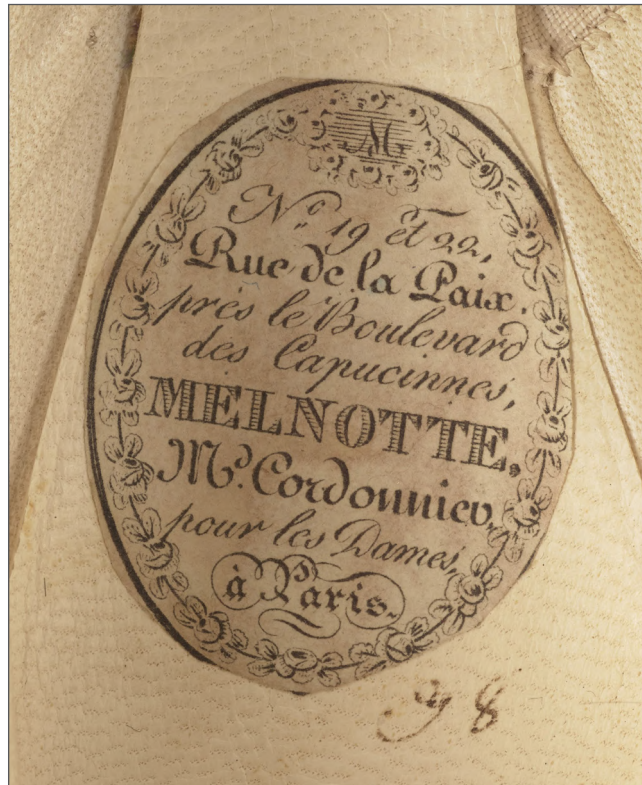 M
N.º 19 et 22,
Rue de la Paix.
près le Boulevard
des Capucinnes,
MELNOTTE,
M.d Cordonnier,
pour les Dames,
à Paris.
98